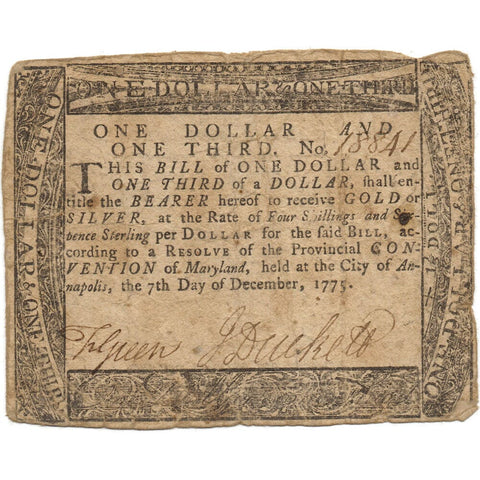 ONE DOLLAR & ONE THIRD
ONE DOLLAR AND
ONE THIRD. No. 18841
THIS BILL of ONE DOLLAR and
ONE THIRD of a DOLLAR, shall en-
title the BEARER hereof to receive GOLD or
SILVER, at the Rate of Four Shillings and Six-
pence Sterling per DOLLAR for the said BILL, ac-
cording to a RESOLVE of the Provincial CON-
VENTION of Maryland, held at the City of An-
napolis, the 7th Day of December, 1775.
J Duckett
ONE DOLLAR & ONE THIRD